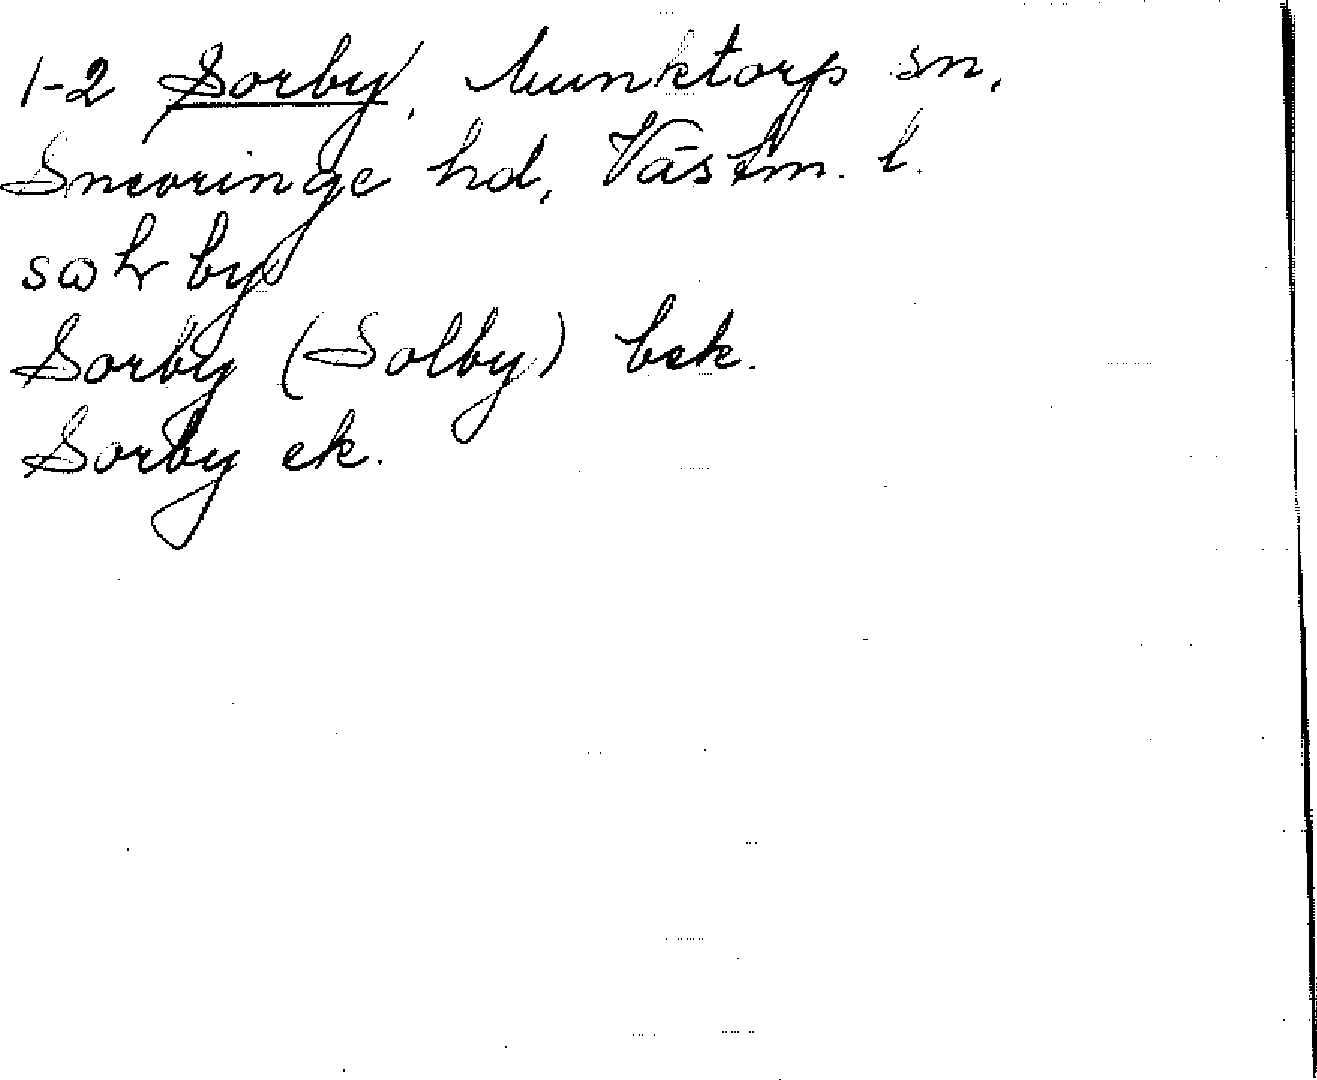 1-2 Sorby, Munktorp sn,
Snevringe hd, Västm. l.
Sorby (Solby) bek.
Sorby ek.